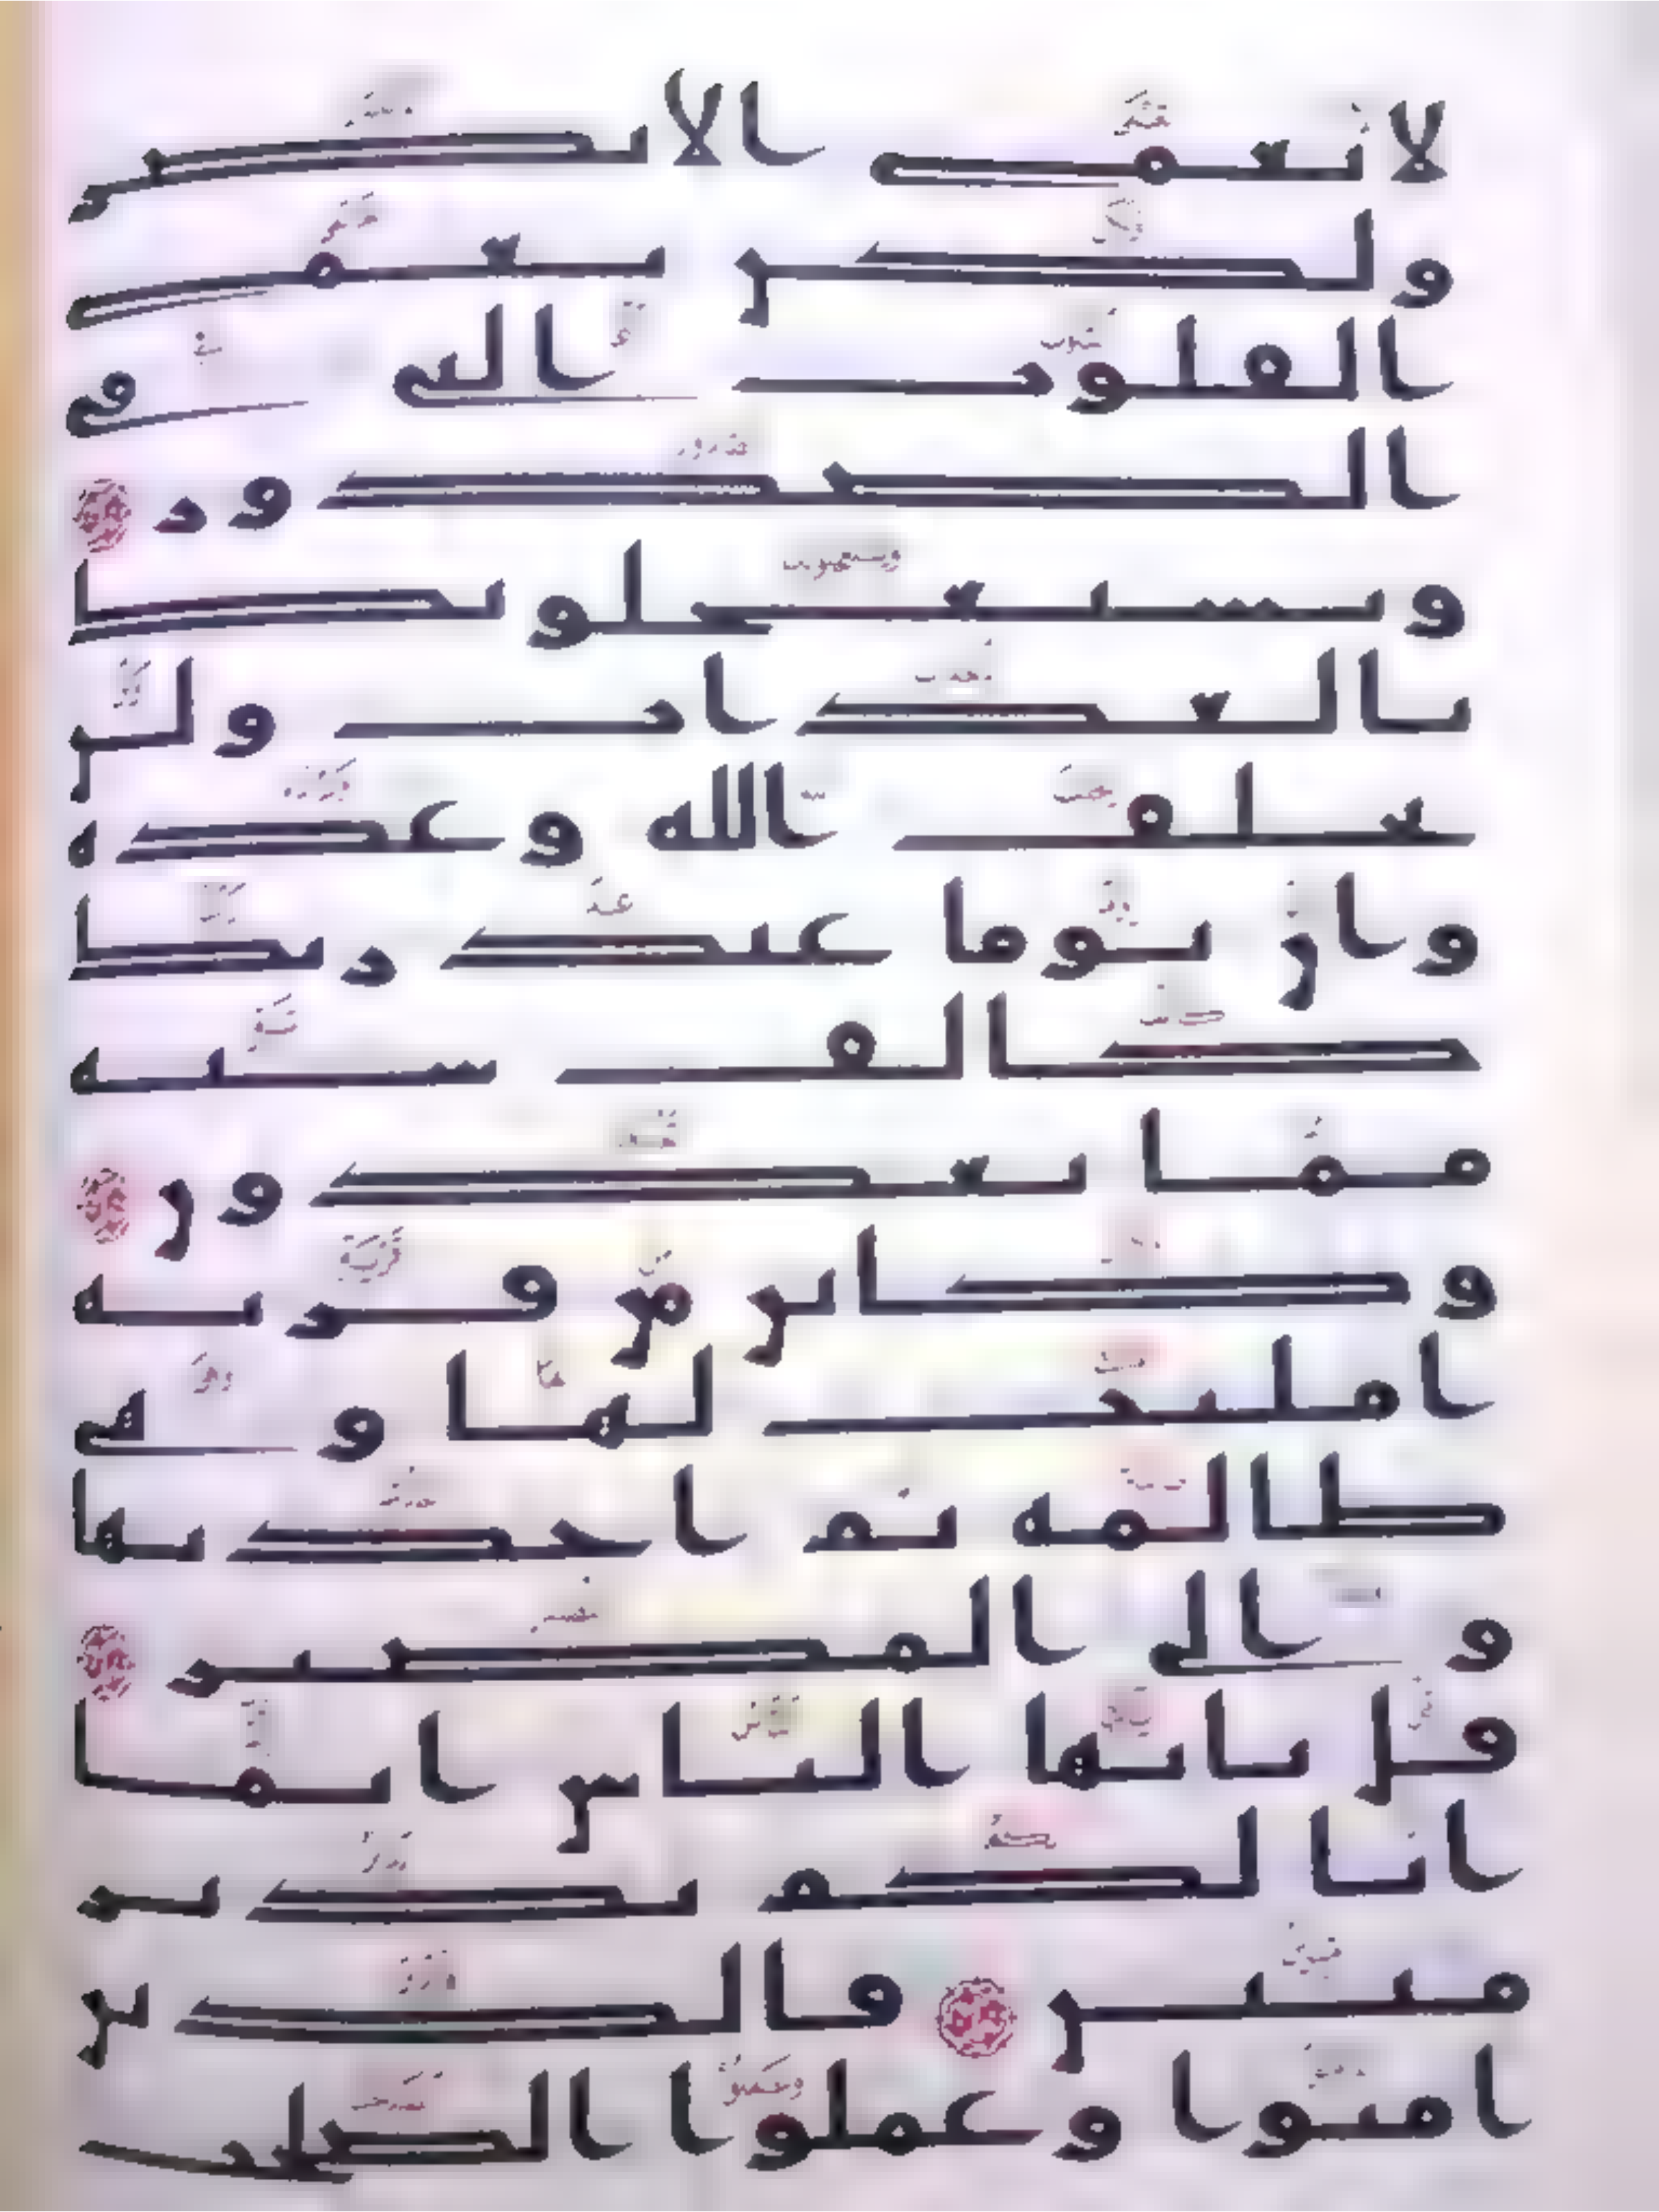 لا تعمى الابصر
ولكن تعمى
القلوب التى فى
الصدور
ويستعجلونك
بالعذاب ولن
يخلف الله وعده
وان يوما عند ربك
كالف سنه
مما تعدون
وكاين من قريه
امليت لها وهى
ظالمه ثم اخذتها
والى المصير
قل يايها الناس انما
انا لكم نذير
مبين فالذين
امنوا وعملوا الصلحت